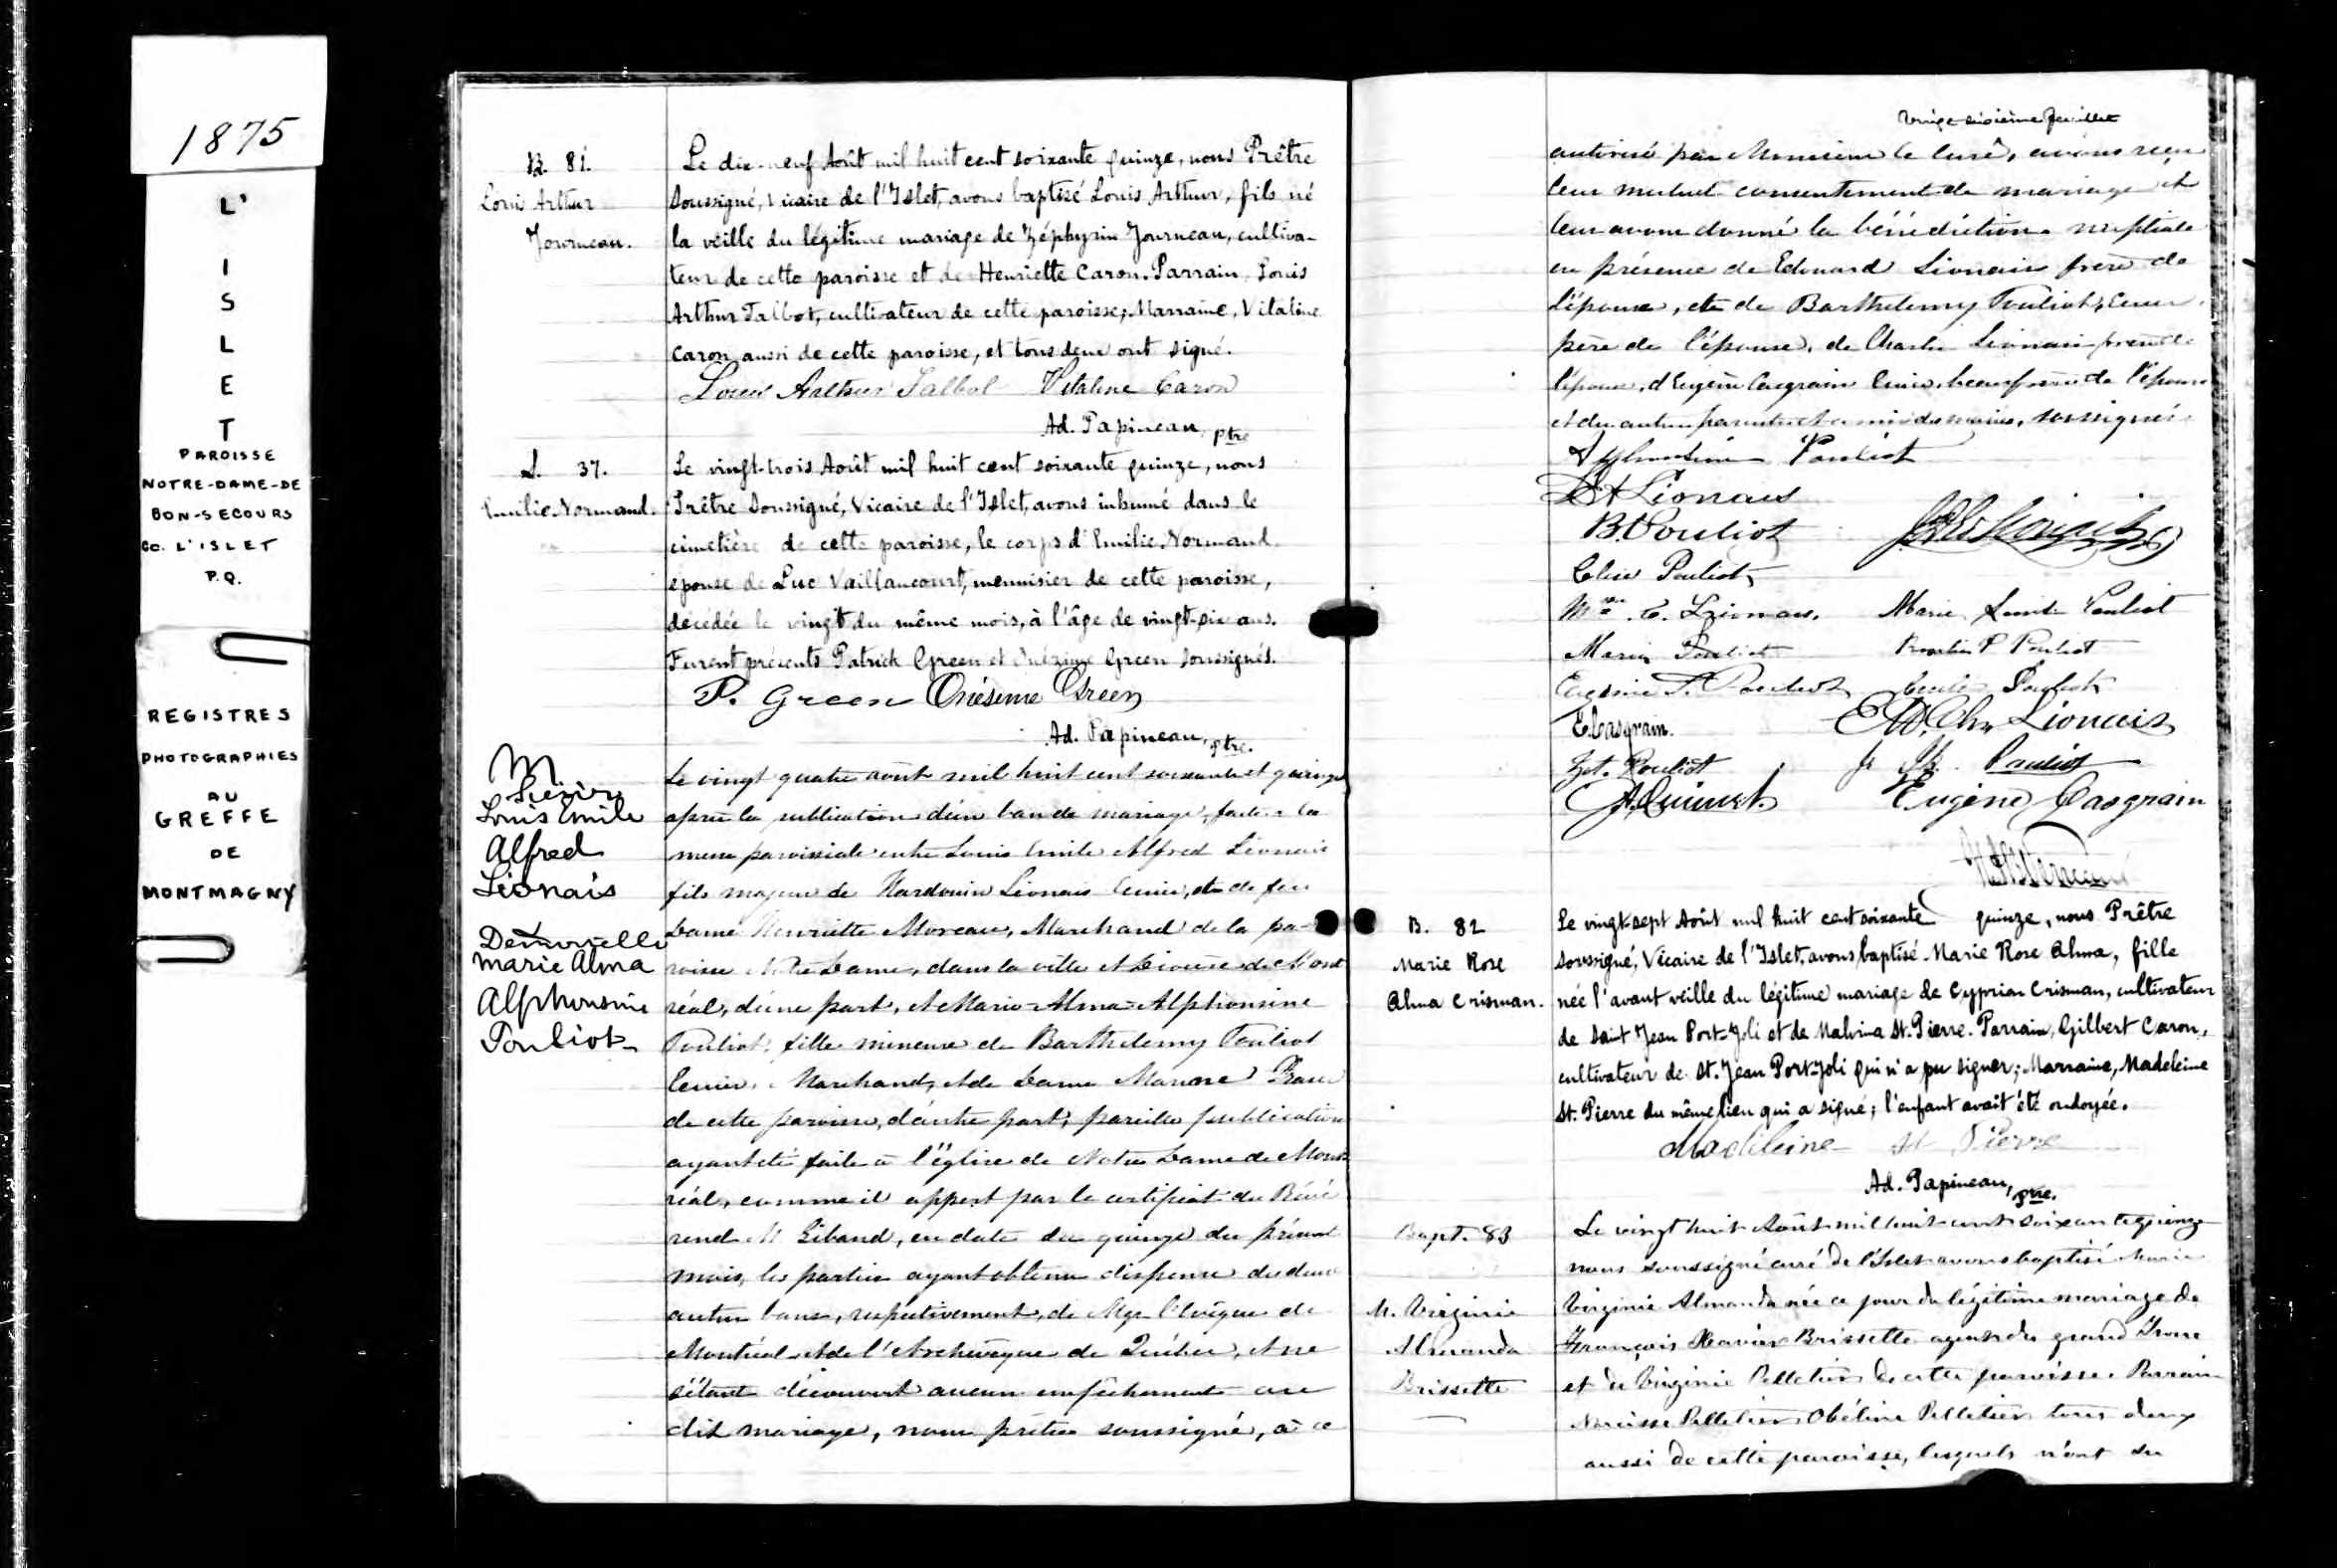 1875
L'
I
S
L
E
T
PAROISSE
NOTRE-DAME-DE
BON-SECOURS
CO. L'ISLET
P.Q.
REGISTRES
PHOTOGRAPHIES
AU
GREFFE
DE
MONTMAGNY
B. 81.
Louis Arthur
Journeau.
Le dix-neuf Août mil huit cent soixante quinze, nous Prêtre
Soussigné, Vicaire de l'Islet, avons baptisé Louis Arthur, fils né
la veille du légitime mariage de Zéphyrin Journeau, cultiva-
teur de cette paroisse et de Henriette Caron. Parrain, Louis
Arthur Talbot, cultivateur de cette paroisse; Marraine, Vitaline
Caron aussi de cette paroisse, et tous deux ont signé.
Louis Arthur Talbot Vitaline Caron
Ad. Papineau, ptre
S. 37.
Emilie Normand.
Le vingt-trois Août mil huit cent soixante quinze, nous
Prêtre Soussigné, Vicaire de l'Islet, avons inhumé dans le
cimetière de cette paroisse, le corps d'Emilie Normand
épouse de Luc Vaillancourt, menuisier de cette paroisse,
décédée le vingt du même mois, à l'âge de vingt-six ans.
Furent présents Patrick Green et Onézime Green soussignés.
P. Green Onésime Green
Ad. Papineau, ptre.
M
Louis Emile
Alfred
Lionais
Demoiselle
Marie Alma
Alphonsine
Pouliot
Le vingt quatre août mil huit cent soixante et quinze
après la publication d'un ban de mariage, faite à la
messe paroissiale entre Louis Emile Alfred Lionais
fils majeur de Hardouin Lionais Ecuier, et de feu
Dame Henriette Moreau, Marchand de la pa-
roisse Notre Dame, dans la ville et Diocèse de Mont
réal, d'une part, et Marie=Alma=Alphonsine
Pouliot, fille mineure de Barthelemy Pouliot
Ecuier, Marchand, et de Dame
de cette paroisse, d'autre part, pareille publication
ayant été faite à l'église de Notre Dame de Mont
réal, comme il appert par le certificat du Révé
rend M Giband, en date du quinze du présent
mois, les parties ayant obtenu dispense des deux
autres bans, respectivement, de Mgr l'Evêque de
Montréal et de l'Archevêque de Québec, et ne
s'étant découvert aucun empêchement au
dit mariage, nous prêtre soussigné, à ce
Vingt-sixième feuillet
autorisé par Monsieur le Curé, avons reçu
leur mutuel consentement de mariage et
leur avons donné la bénédiction nuptiale
en présence de Edouard Lionais frère de
l'époux, et de Barthelemy Pouliot, Ecuier
père de l'épouse, de Charles Lionais frère de
l'époux, d'Eugène Casgrain Ecuier, beau-frère de l'épouse
et des autres parents et amis des mariés, soussignés
Alphonsine Pouliot
Lionais
B. Pouliot
Pouliot
Mme C. Lionais. Marie Pouliot
Marie Pouliot P Pouliot
Pouliot Pouliot
E. Casgrain. Ed. Ch. Lionais
Pouliot Pouliot
Eugène Casgrain
B. 82
Marie Rose
Alma Crisman.
Le vingt-sept Août mil huit cent soixante quinze, nous Prêtre
soussigné, Vicaire de l'Islet, avons baptisé Marie Rose Alma, fille
née l'avant veille du légitime mariage de Cyprien Crisman, cultivateur
de Saint Jean Port-Joli et de Malvina St. Pierre. Parrain, Gilbert Caron,
cultivateur de St. Jean Port-Joli qui n'a pu signer; Marraine, Madeleine
St. Pierre du même lieu qui a signé; l'enfant avait été ondoyée.
Madeleine St Pierre
Ad. Papineau, ptre.
Bapt. 83
M. Virginie
Almanda
Brissette
Le vingt huit Août mil huit cent soixante quinze
nous soussigné curé de l'Islet avons baptisé Marie
Virginie Almanda née ce jour du légitime mariage de
François Xavier Brissette agent du grand Tronc
et de Virginie Pelletier de cette paroisse. Parrain
Narcisse Pelletier Obéline Pelletier tous deux
aussi de cette paroisse, lesquels n'ont su